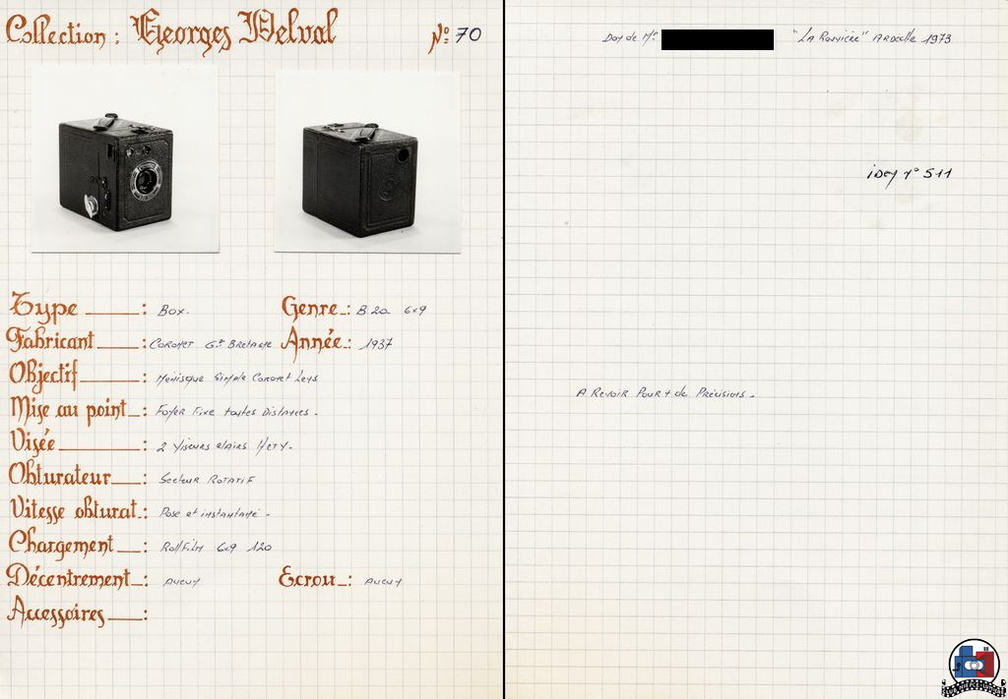 Collection : Georges Delval Nº 70
Type : Box.
Genre : B 20 6x9
Fabricant : CORONET Gde BRETAGNE
Année : 1937
Objectif : Ménisque Simple Coronet Lens
Mise au point : Foyer Fixe toutes Distances.
Visée : 2 Viseurs clairs
Obturateur : Secteur ROTATIF
Vitesse obturat. : Pose et instantané.
Chargement : RollFilm 6x9 120
Décentrement : Aucun
Ecrou : Aucun
Accessoires :
Don de Mr "LA" ARDECHE 1973
n° 511
A Revoir Pour + de Précisions.